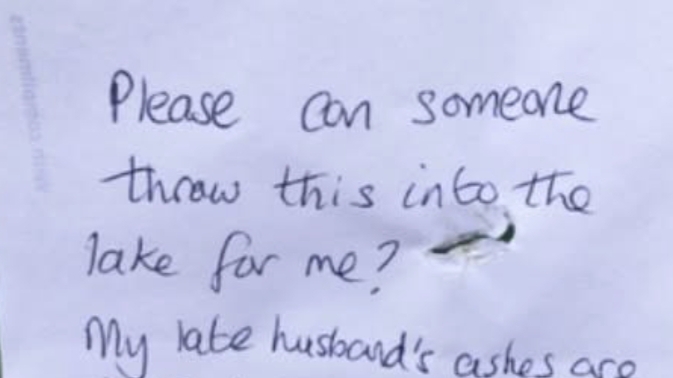 Please can someone
throw this into the
lake for me?
My late husband's ashes are